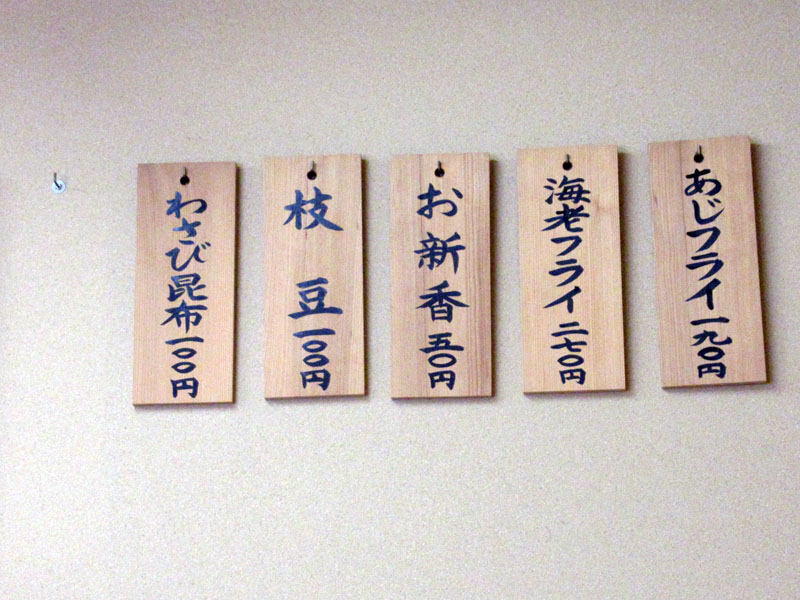 あじフライ一九〇円
海老フライ二七〇円
お新香五〇円
枝豆一〇〇円
わさび昆布一〇〇円